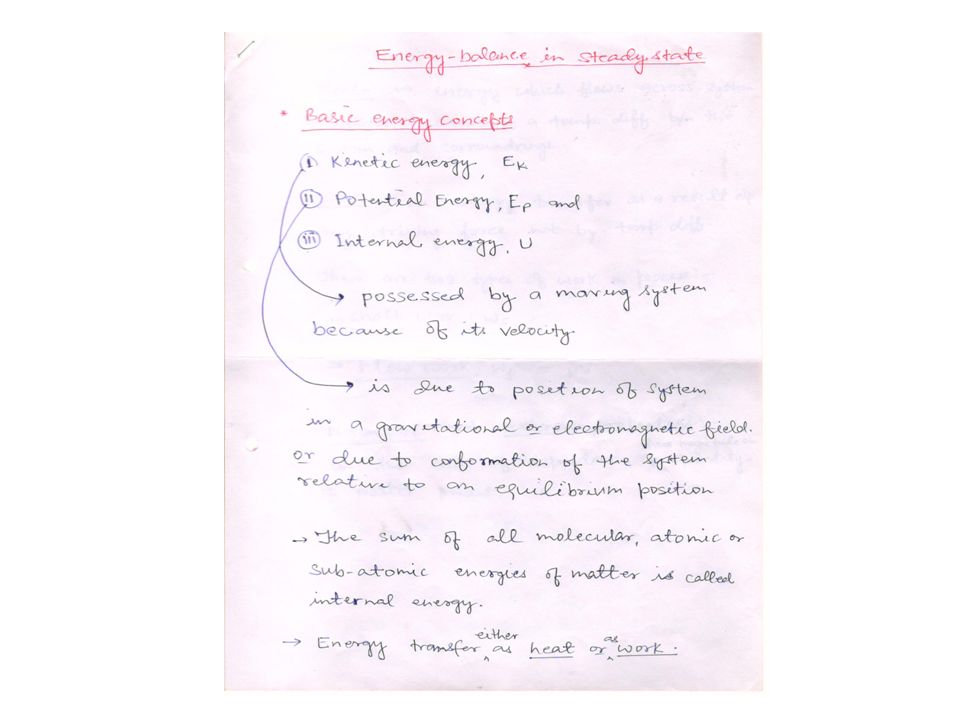 Energy-balance in steady state
* Basic energy concepts
(i) Kinetic energy, EK
(ii) Potential Energy, EP and
(iii) Internal energy, U
→ possessed by a moving system
because of its velocity
→ is due to position of system
in a gravitational or electromagnetic field.
or due to conformation of the system
relative to an equilibrium position
→ The sum of all molecular, atomic or
sub-atomic energies of matter is called
internal energy.
→ Energy transfer either as heat or as work.